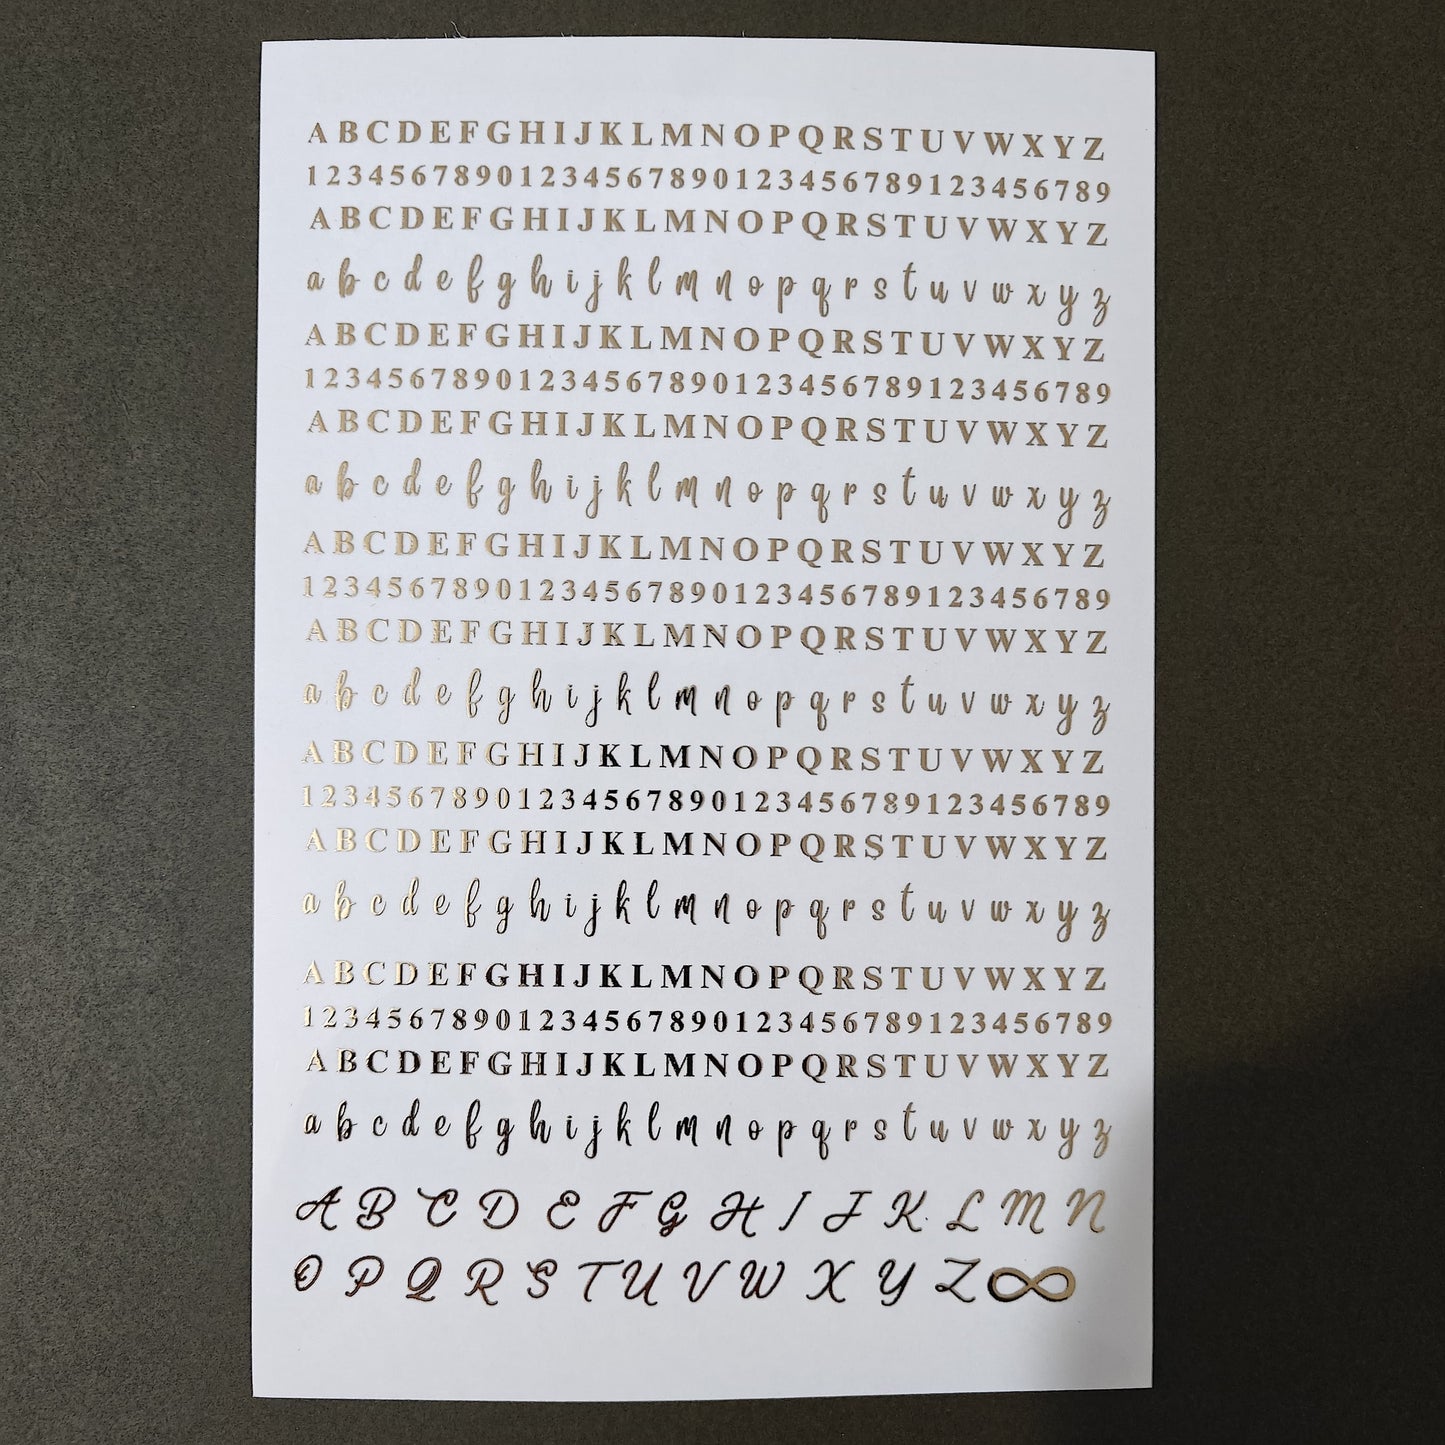 A B C D E F G H I J K L M N O P Q R S T U V W X Y Z
1 2 3 4 5 6 7 8 9 0 1 2 3 4 5 6 7 8 9 0 1 2 3 4 5 6 7 8 9 1 2 3 4 5 6 7 8 9
A B C D E F G H I J K L M N O P Q R S T U V W X Y Z
a b c d e f g h i j k l m n o p q r s t u v w x y z
A B C D E F G H I J K L M N O P Q R S T U V W X Y Z
1 2 3 4 5 6 7 8 9 0 1 2 3 4 5 6 7 8 9 0 1 2 3 4 5 6 7 8 9 1 2 3 4 5 6 7 8 9
A B C D E F G H I J K L M N O P Q R S T U V W X Y Z
a b c d e f g h i j k l m n o p q r s t u v w x y z
A B C D E F G H I J K L M N O P Q R S T U V W X Y Z
1 2 3 4 5 6 7 8 9 0 1 2 3 4 5 6 7 8 9 0 1 2 3 4 5 6 7 8 9 1 2 3 4 5 6 7 8 9
A B C D E F G H I J K L M N O P Q R S T U V W X Y Z
a b c d e f g h i j k l m n o p q r s t u v w x y z
A B C D E F G H I J K L M N O P Q R S T U V W X Y Z
1 2 3 4 5 6 7 8 9 0 1 2 3 4 5 6 7 8 9 0 1 2 3 4 5 6 7 8 9 1 2 3 4 5 6 7 8 9
A B C D E F G H I J K L M N O P Q R S T U V W X Y Z
a b c d e f g h i j k l m n o p q r s t u v w x y z
A B C D E F G H I J K L M N O P Q R S T U V W X Y Z
1 2 3 4 5 6 7 8 9 0 1 2 3 4 5 6 7 8 9 0 1 2 3 4 5 6 7 8 9 1 2 3 4 5 6 7 8 9
A B C D E F G H I J K L M N O P Q R S T U V W X Y Z
a b c d e f g h i j k l m n o p q r s t u v w x y z
A B C D E F G H I J K L M N
O P Q R S T U V W X Y Z ∞